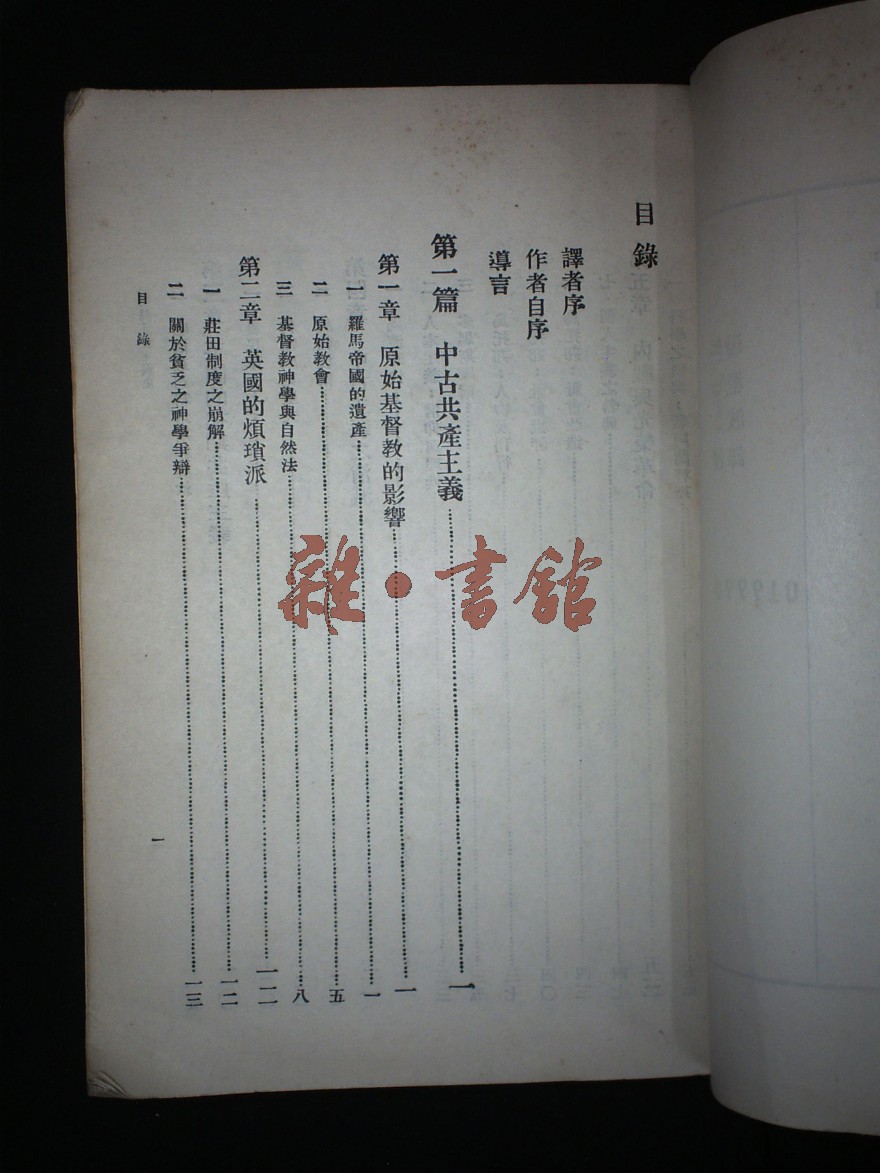 目錄
譯者序
作者自序
導言
第一篇 中古共產主義……一
第一章 原始基督教的影響……一
一 羅馬帝國的遺產……一
二 原始教會……五
三 基督教神學與自然法……八
第二章 英國的煩瑣派……一二
一 莊田制度之崩解……一二
二 關於貧乏之神學爭辯……一三
目錄
一
雜·書館